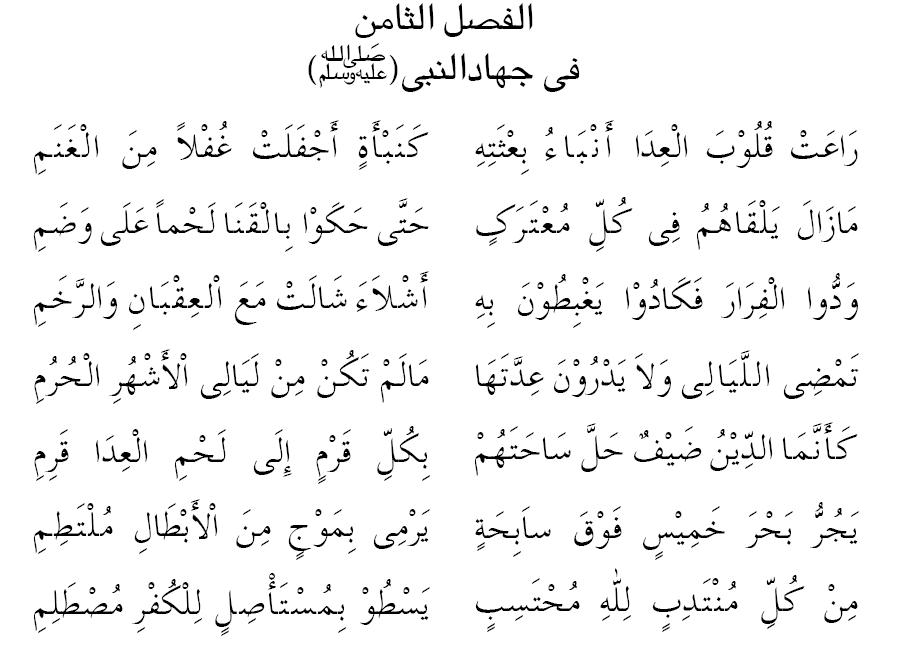 الفصل الثامن
فى جهادالنبى(ﷺ)
رَاعَتْ قُلُوْبَ الْعِدَا أَنْبَاءُ بِعْثَتِهِ كَنَبْأَةٍ أَجْفَلَتْ غُفْلاً مِنَ الْغَنَمِ
مَازَالَ يَلْقَاهُمُ فِى كُلِّ مُعْتَرَكٍ حَتَّى حَكَوْا بِالْقَنَا لَحْماً عَلَى وَضَمِ
وَدُّوا الْفِرَارَ فَكَادُوْا يَغْبِطُوْنَ بِهِ أَشْلاَءَ شَالَتْ مَعَ الْعِقْبَانِ وَالرَّخَمِ
تَمْضِى اللَّيَالِى وَلاَ يَدْرُوْنَ عِدَّتَهَا مَالَمْ تَكُنْ مِنْ لَيَالِى الْأَشْهُرِ الْحُرُمِ
كَأَنَّمَا الدِّيْنُ ضَيْفٌ حَلَّ سَاحَتَهُمْ بِكُلِّ قَرْمٍ إِلَى لَحْمِ الْعِدَا قَرِمِ
يَجُرُّ بَحْرَ خَمِيْسٍ فَوْقَ ساَبِحَةٍ يَرْمِى بِمَوْجٍ مِنَ الْأَبْطَالِ مُلْتَطِمِ
مِنْ كُلِّ مُنْتَدِبٍ لِلّٰهِ مُحْتَسِبٍ يَسْطُوْ بِمُسْتَأْصِلٍ لِلْكُفْرِ مُصْطَلِمِ